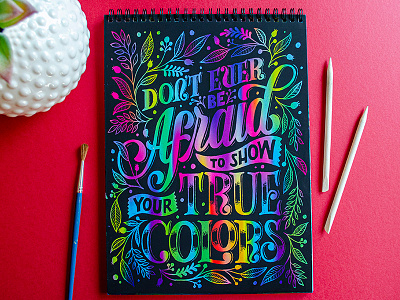 DON'T EVER
BE
Afraid
TO SHOW
YOUR TRUE
COLORS